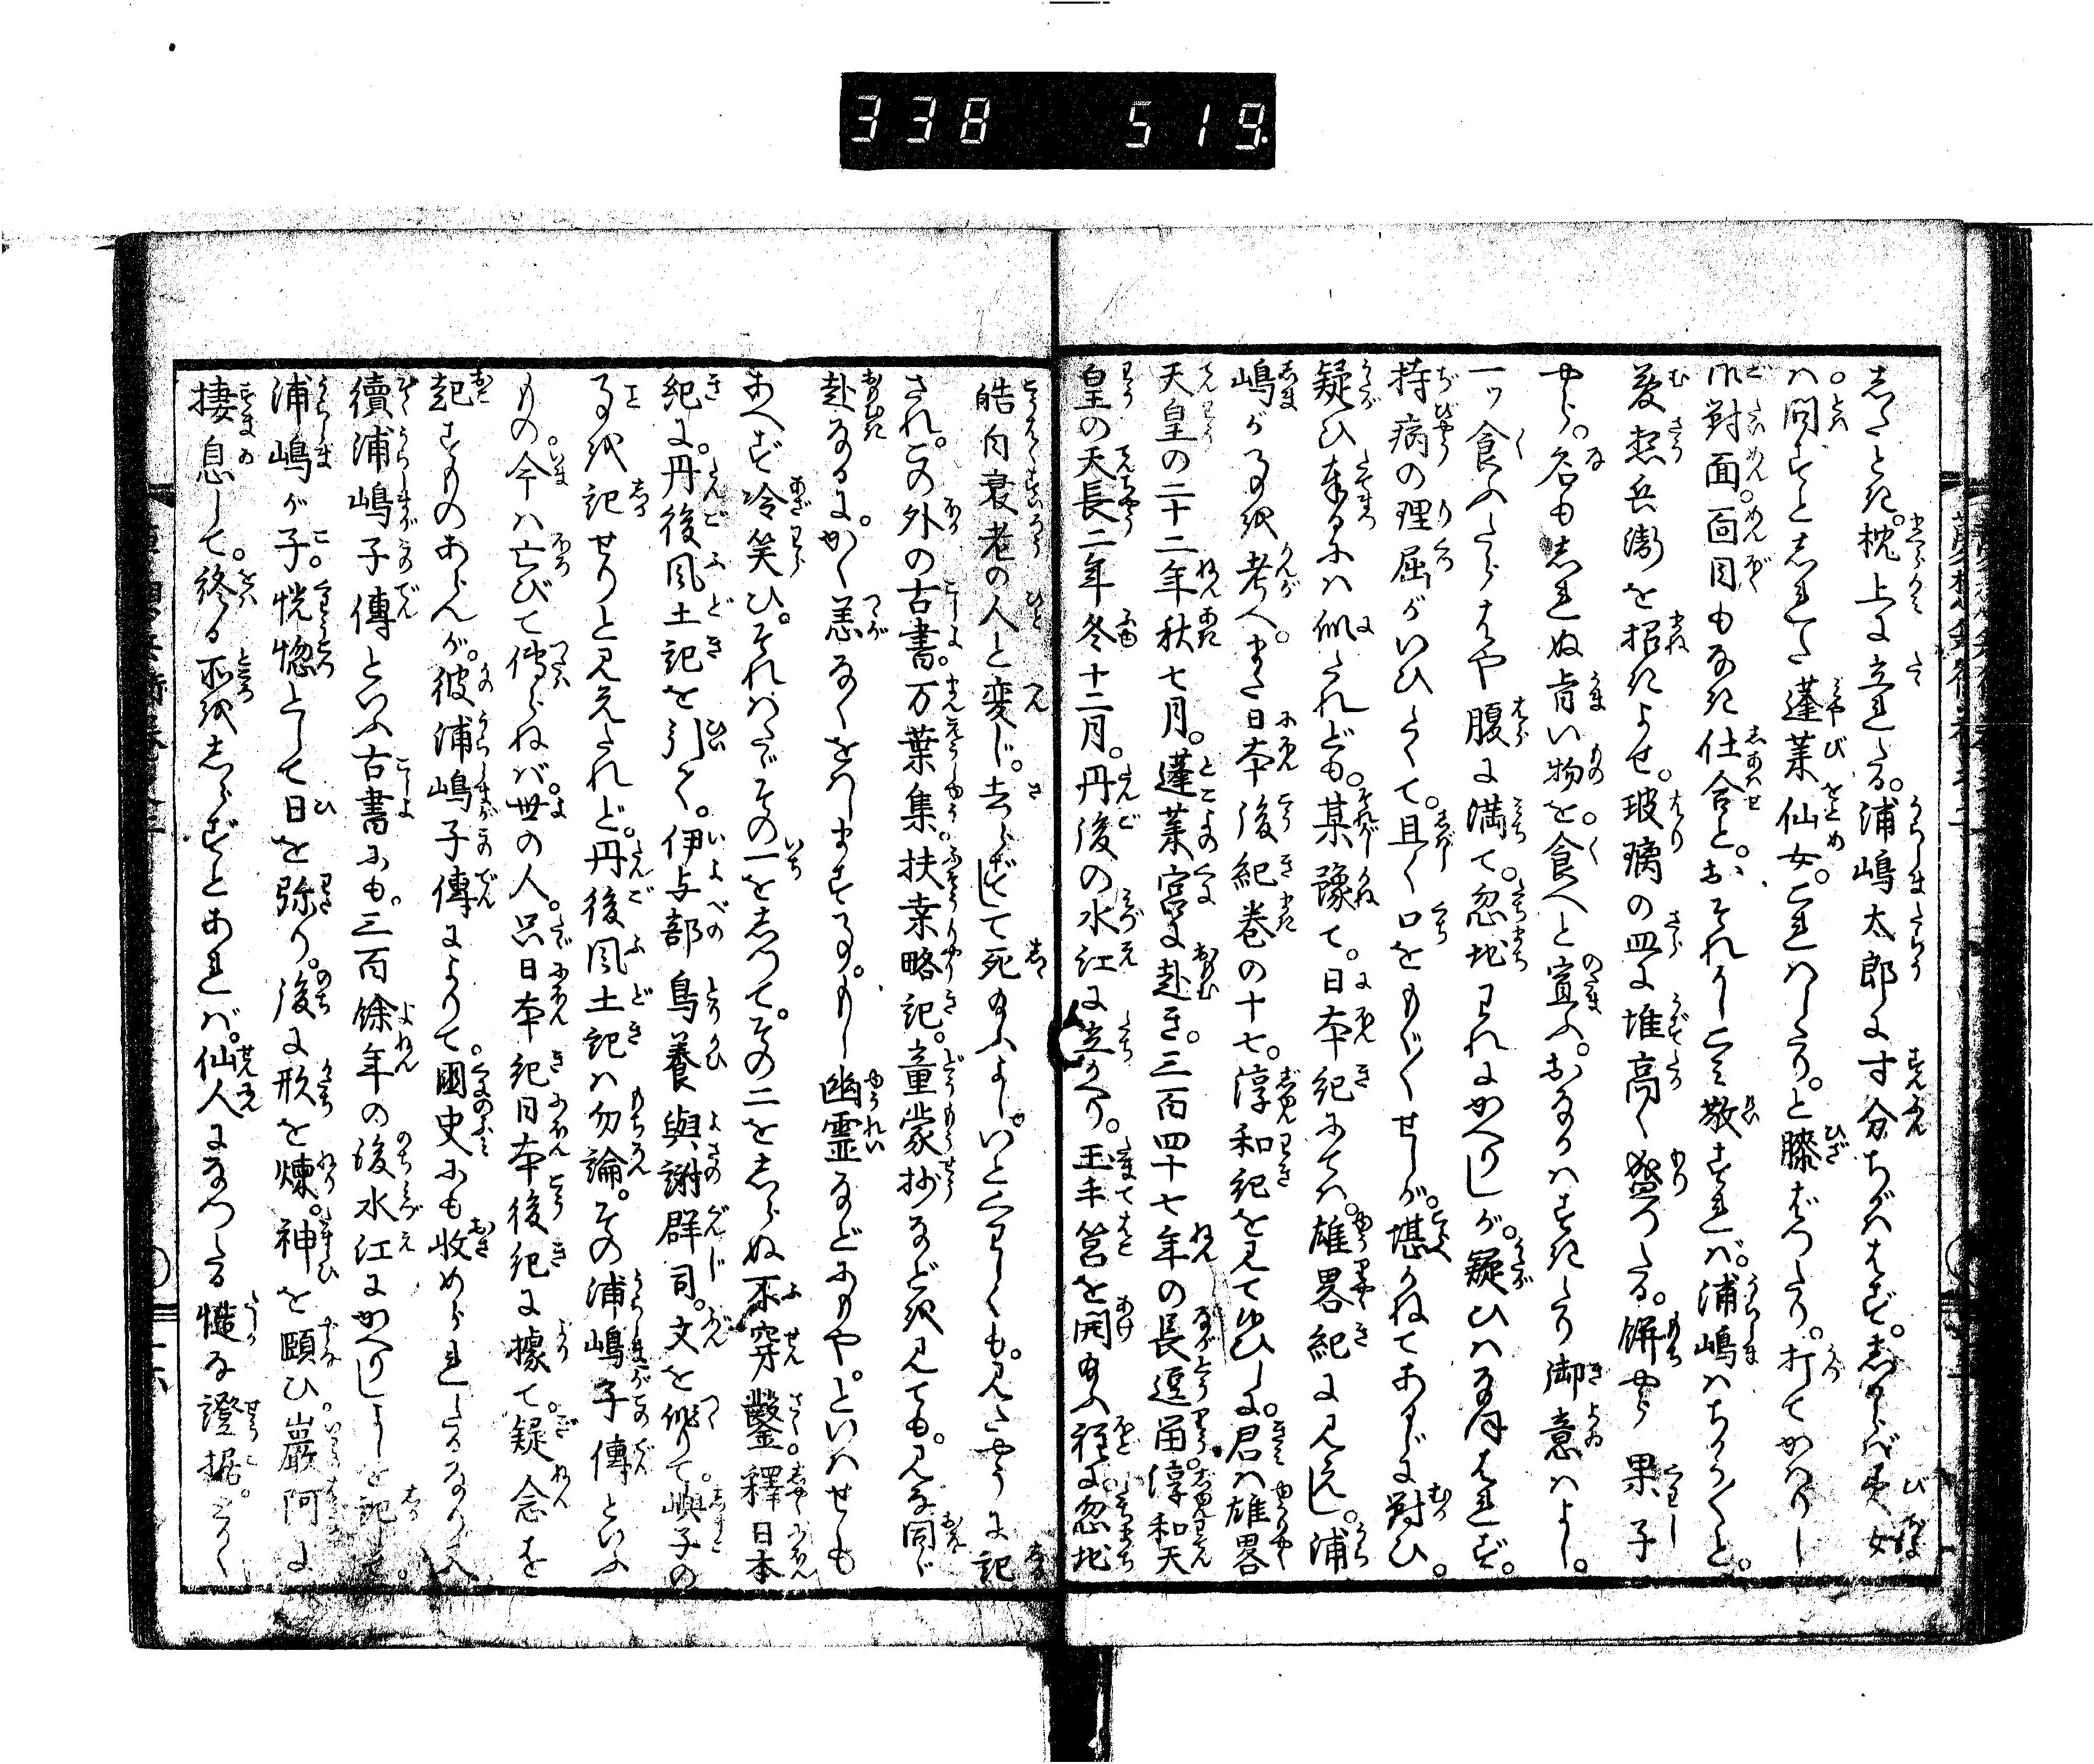 338 519
しるとき。枕上に立れたる。浦嶋太郎に寸分ちがはもず。しからば美女
ハ問ずとしれた蓬莱仙女。これハしたり。と膝ばつたり。打てかはりし
御對面。面目もなき仕合と。おそれ〳〵敬ずれバ。浦嶋ハちかう〳〵と。
夢想兵衛を招きよせ。玻璃の皿に堆高く盛つたる。餅やら果子
やら。名もしれぬ旨い物を。食へと宣ふ。おなかハすきたり御意ハよし。
一ッ食ふたらもや腹に満て。忽地われにかへりしが。疑ひハなほはれず。
持病の理屈がいひたくて。且く口をもぢ〳〵せしが。堪かねてあるじに對ひ。
疑ひ奉るにハ似たれども。某豫て。日本紀にてハ。雄畧紀に見えし。浦
嶋が事を考へ。また日本後紀巻の十七。淳和紀を見て候ひしに。君ハ雄畧
天皇の二十二年秋七月。蓬莱宮に赴き。三百四十七年の長逗留。淳和天
皇の天長二年冬十二月。丹後の水江に立かへり。玉手筥を開給ふ程に。忽地
皓白衰老の人と変じ。去らずして死給ふよし。いとくはしくも。見たやうに記
され。この外の古書。万葉集。扶桒略記。童蒙抄などを見ても。みな同じ
赴なるに。かく恙なくをはしますハ。もし幽霊などにもや。といはせも
あへず冷笑ひ。それハたゞその一をしつて。その二をしらぬ不穿鑿。釋日本
紀に。丹後風土記を引て。伊与部鳥養與謝群司。文を作りて。嶼子の
事を記せりと見えたれど。丹後風土記ハ勿論。その浦嶋子傳といふ
もの。今ハ亡びて傳らねバ。世の人。只日本紀日本後紀に據て。疑念を
起すものあらんが。彼浦嶋子傳によりて。國史にも收められしなり。又
續浦嶋子傳といふ古書にも。三百餘年の後水江にかへりしよしを記して。
浦嶋が子。恍惚として日を弥り。後に形を煉。神を頤ひ。巖阿に
捿息して。終る所をしらずとあれバ。仙人になつたる慥な證据。